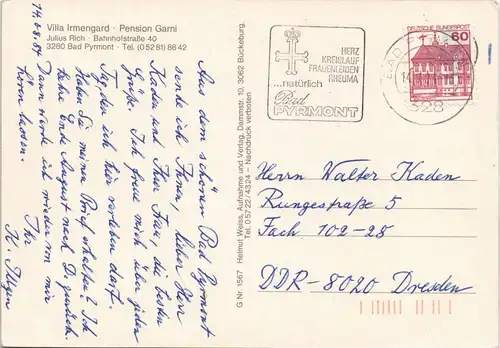 Villa Irmengard · Pension Garni
Julius Rich · Bahnhofstraße 40
3280 Bad Pyrmont · Tel. (0 52 81) 86 42
14.8.84
Aus dem schönen Bad Pyrmont
sende ich Ihnen, lieber Herr
Kaden und Ihrer Frau, die besten
Grüße. Ich freue mich über jeden
Tag, den ich hier verleben darf.
Haben Sie meinen Brief erhalten? Ich
kehre Ende August nach D. zurück.
Dann werde ich wieder von mir
hören lassen.
Ihr
G Nr. 1567 Helmut Weiss, Aufnahme und Verlag, Dammstr. 10, 3062 Bückeburg,
Tel. 0 57 22 / 43 24 – Nachdruck verboten
HERZ
KREISLAUF
FRAUENLEIDEN
RHEUMA
...natürlich
Bad
PYRMONT
DEUTSCHE BUNDESPOST
60
BAD
328
Herrn Walter Kaden
Rungestraße 5
Fach 102-28
DDR-8020 Dresden